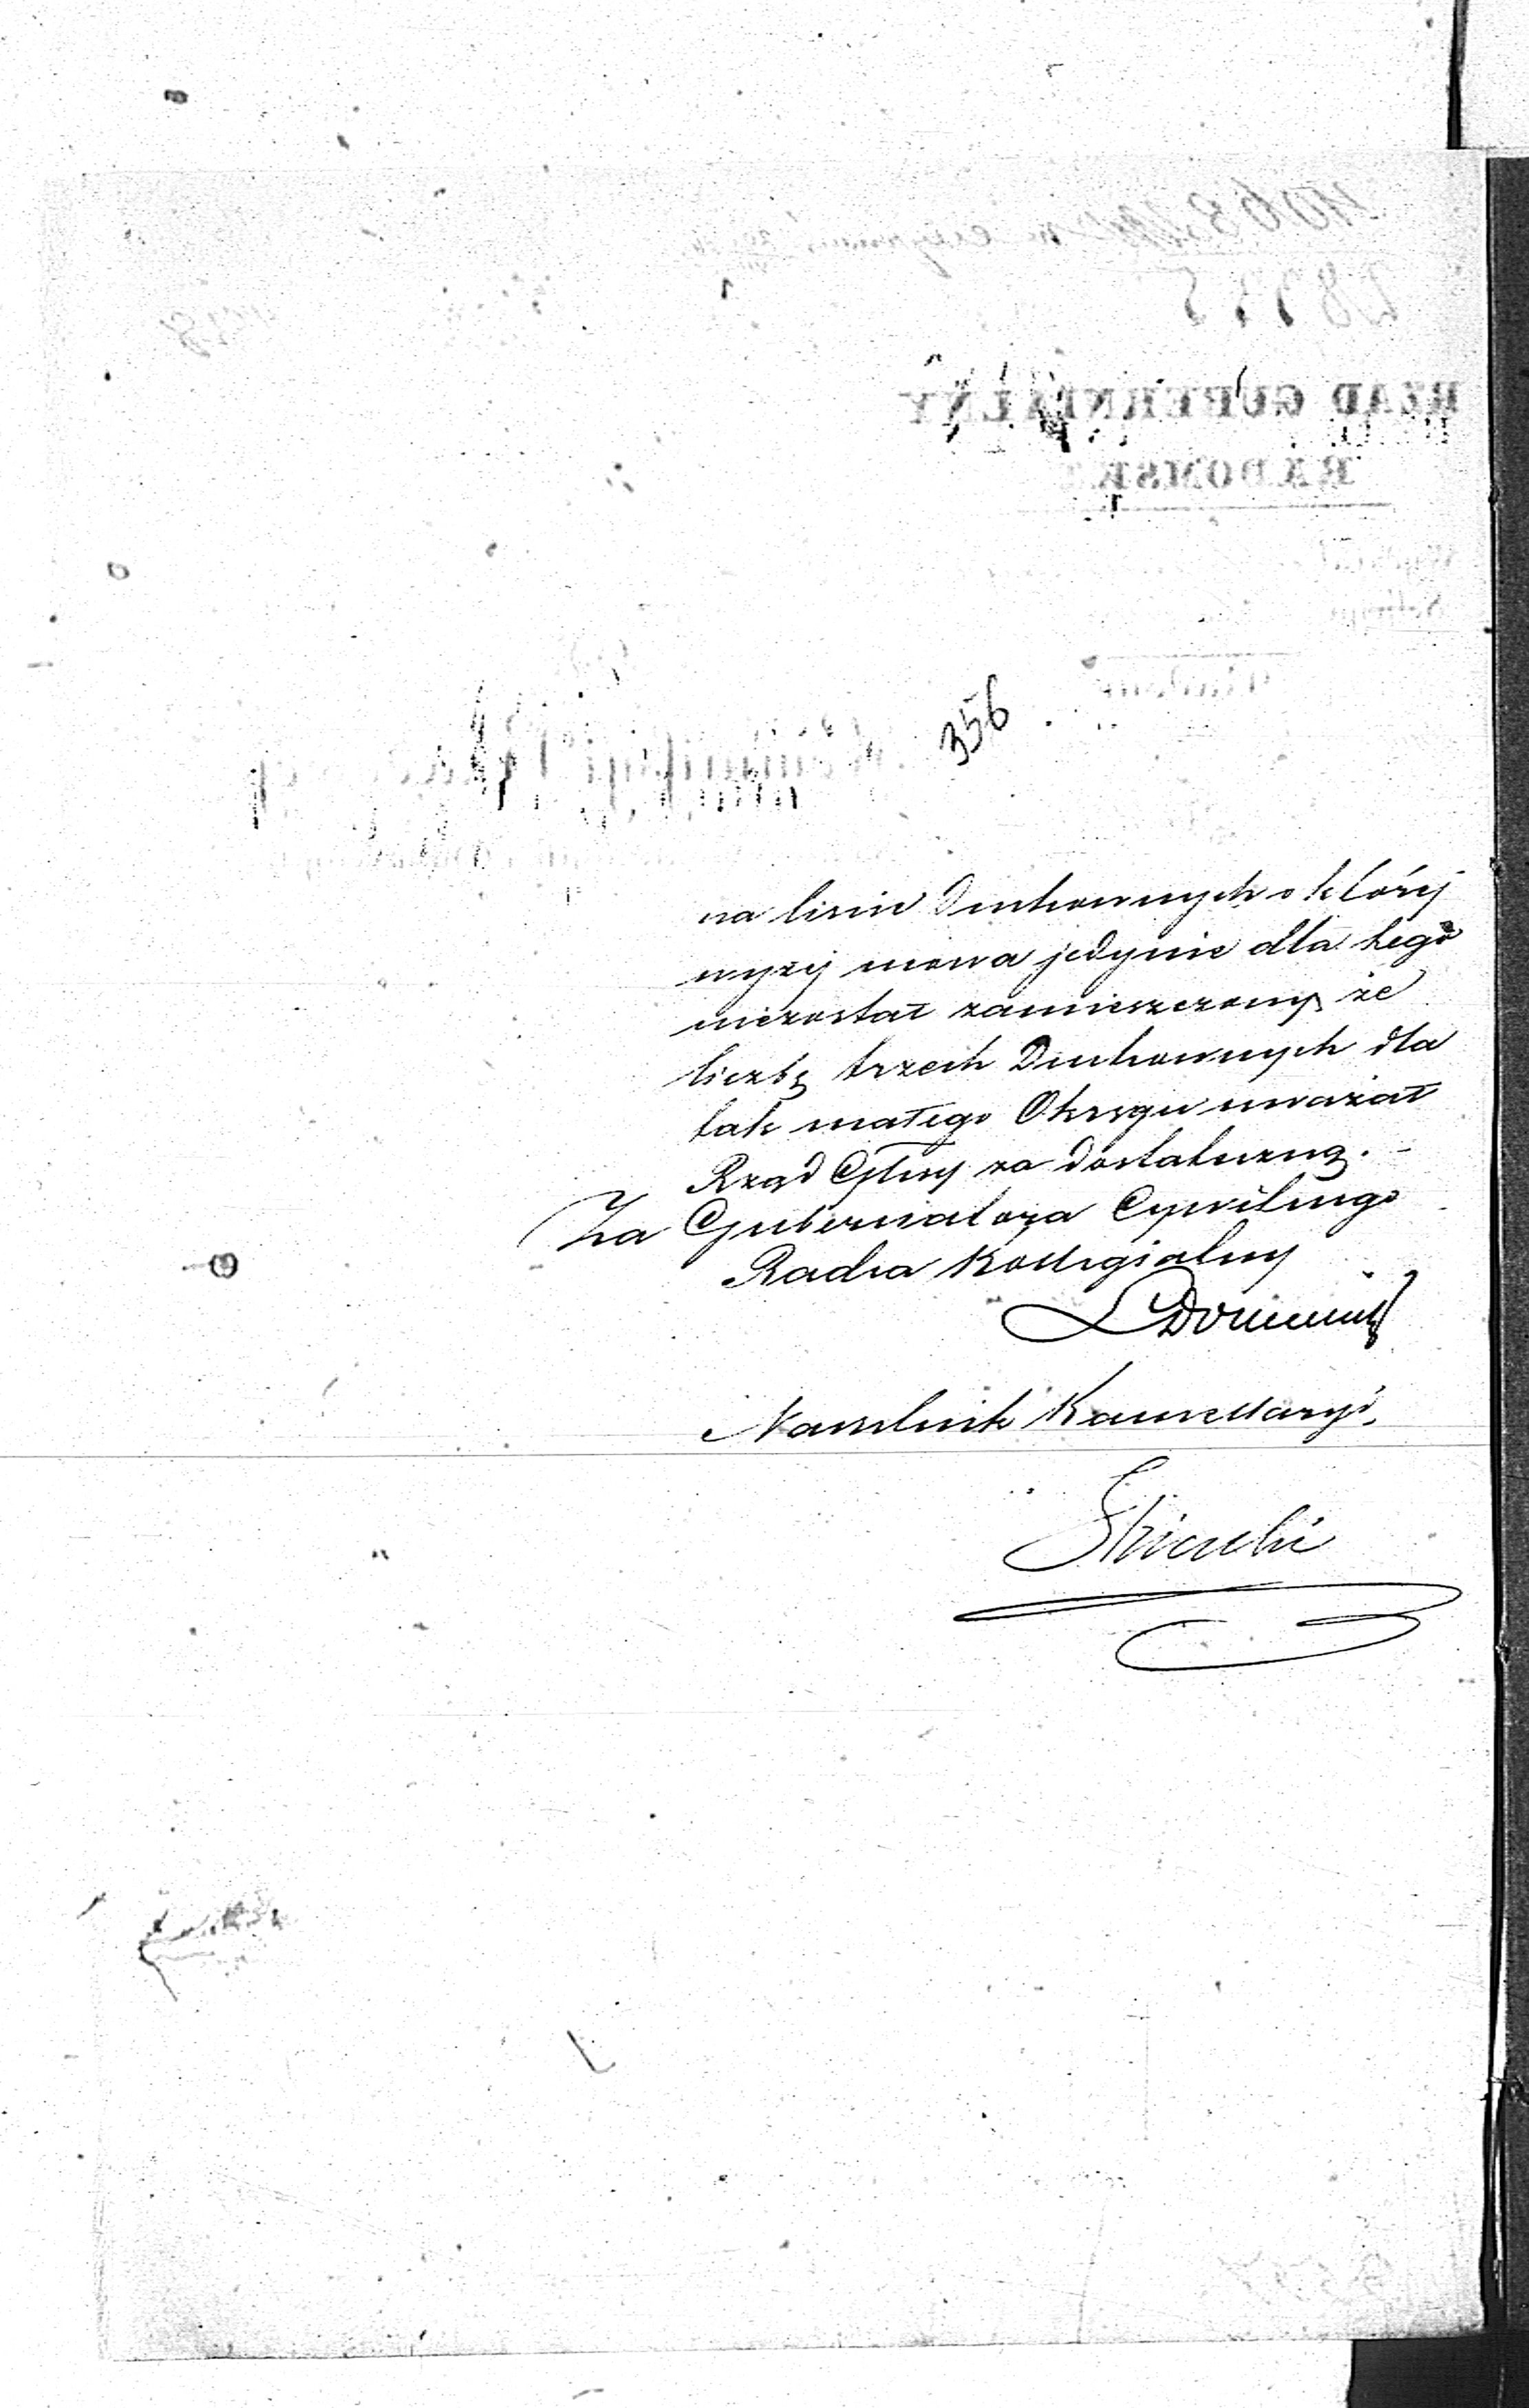 356
na liście Duchownych o którój
wyżej mowa jedynie dla tego
niezostał zamieszczony, że
liczbę trzech Duchownych dla
tak małego Okręgu uważał
Rząd Glny za dostateczną. -
Za Gubernatora Cywilnego
Radca Kollegialny
Naczelnik Kancellaryi.